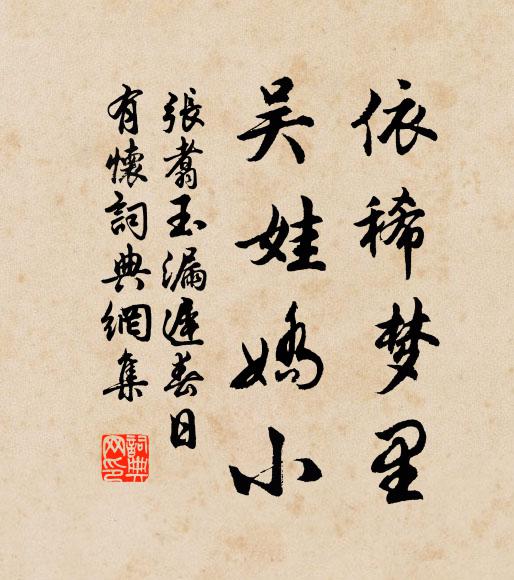 依稀梦里
吴娃娇小
張翥玉漏遲春日
有懷詞典網集
詞典网印